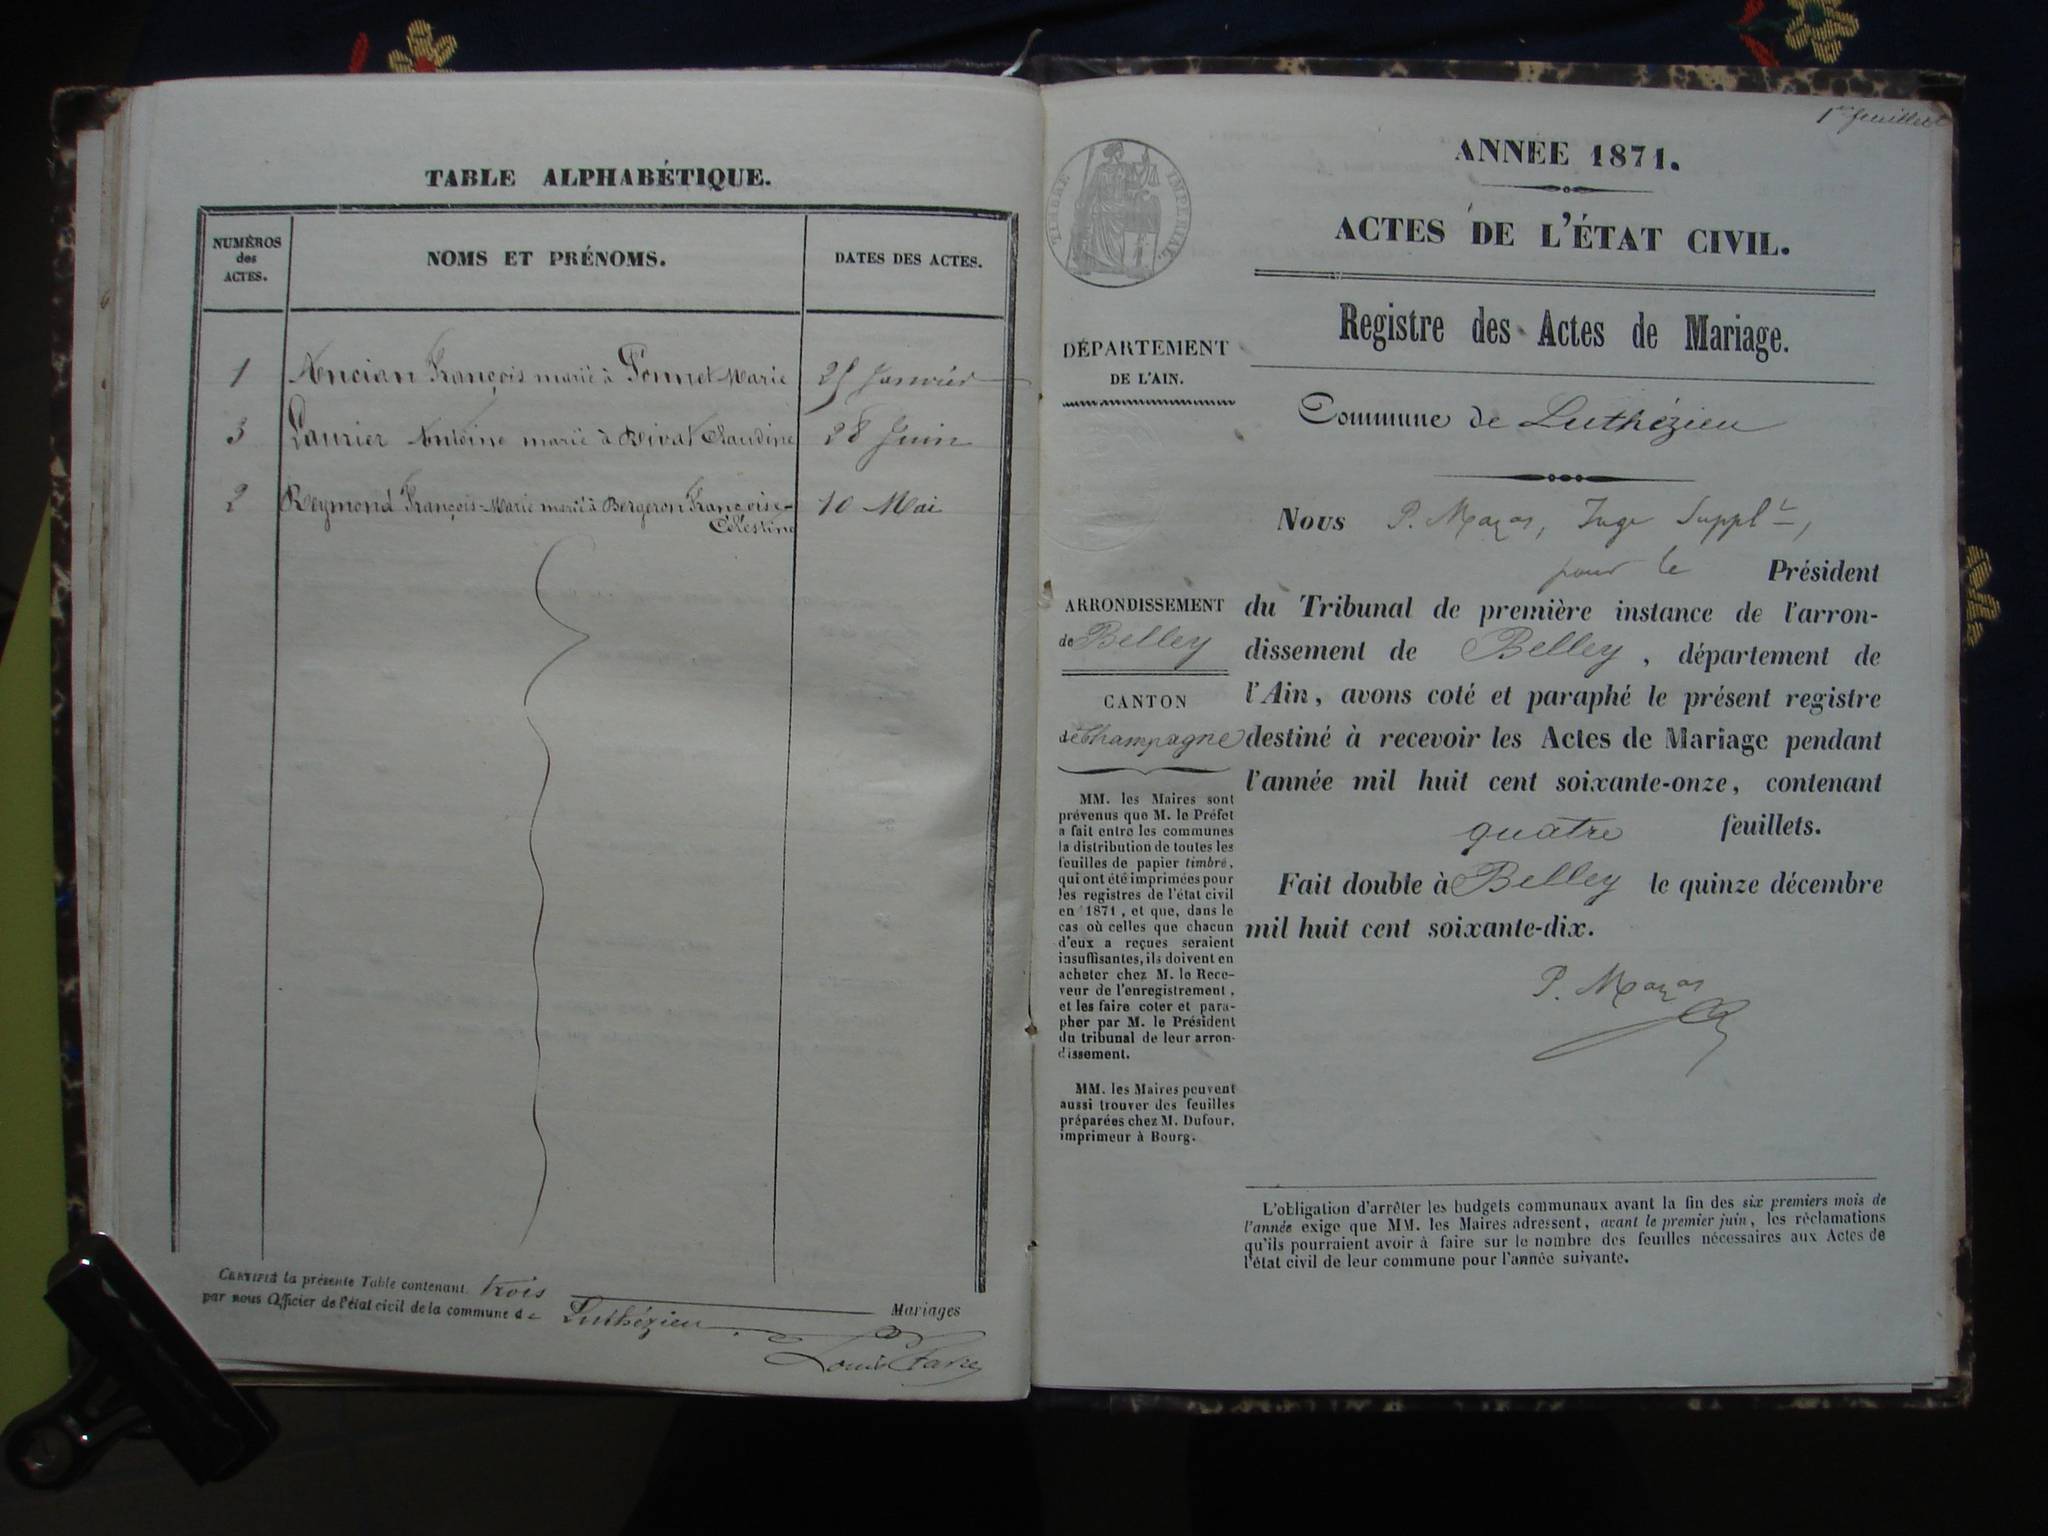 TABLE ALPHABÉTIQUE.
NUMÉROS
des
ACTES.
NOMS ET PRÉNOMS.
DATES DES ACTES.
1 Ancian François marié à Ponnet Marie 25 Janvier
3 Laurier Antoine marié à Rivat Claudine 28 Juin
2 Reymond François-Marie marié à Bergeron Françoise- 10 Mai
Célestine
CERTIFIÉ la présente Table contenant trois Mariages
par nous Officier de l'état civil de la commune de Luthézieu.
Louis Favre
1er feuillet
ANNÉE 1871.
ACTES DE L'ÉTAT CIVIL.
Registre des Actes de Mariage.
TIMBRE IMPÉRIAL
DÉPARTEMENT
DE L'AIN.
Commune de Luthézieu
Nous P. Mazas, Juge Suppl,
pour le Président
ARRONDISSEMENT
de Belley
CANTON
de Champagne
du Tribunal de première instance de l'arron-
dissement de Belley, département de
l'Ain, avons coté et paraphé le présent registre
destiné à recevoir les Actes de Mariage pendant
l'année mil huit cent soixante-onze, contenant
quatre feuillets.
Fait double à Belley le quinze décembre
mil huit cent soixante-dix.
P. Mazas
MM. les Maires sont
prévenus que M. le Préfet
a fait entre les communes
la distribution de toutes les
feuilles de papier timbré,
qui ont été imprimées pour
les registres de l'état civil
en 1871, et que, dans le
cas où celles que chacun
d'eux a reçues seraient
insuffisantes, ils doivent en
acheter chez M. le Rece-
veur de l'enregistrement,
et les faire coter et para-
pher par M. le Président
du tribunal de leur arron-
dissement.
MM. les Maires peuvent
aussi trouver des feuilles
préparées chez M. Dufour,
imprimeur à Bourg.
L'obligation d'arrêter les budgets communaux avant la fin des six premiers mois de
l'année exige que MM. les Maires adressent, avant le premier juin, les réclamations
qu'ils pourraient avoir à faire sur le nombre des feuilles nécessaires aux Actes de
l'état civil de leur commune pour l'année suivante.